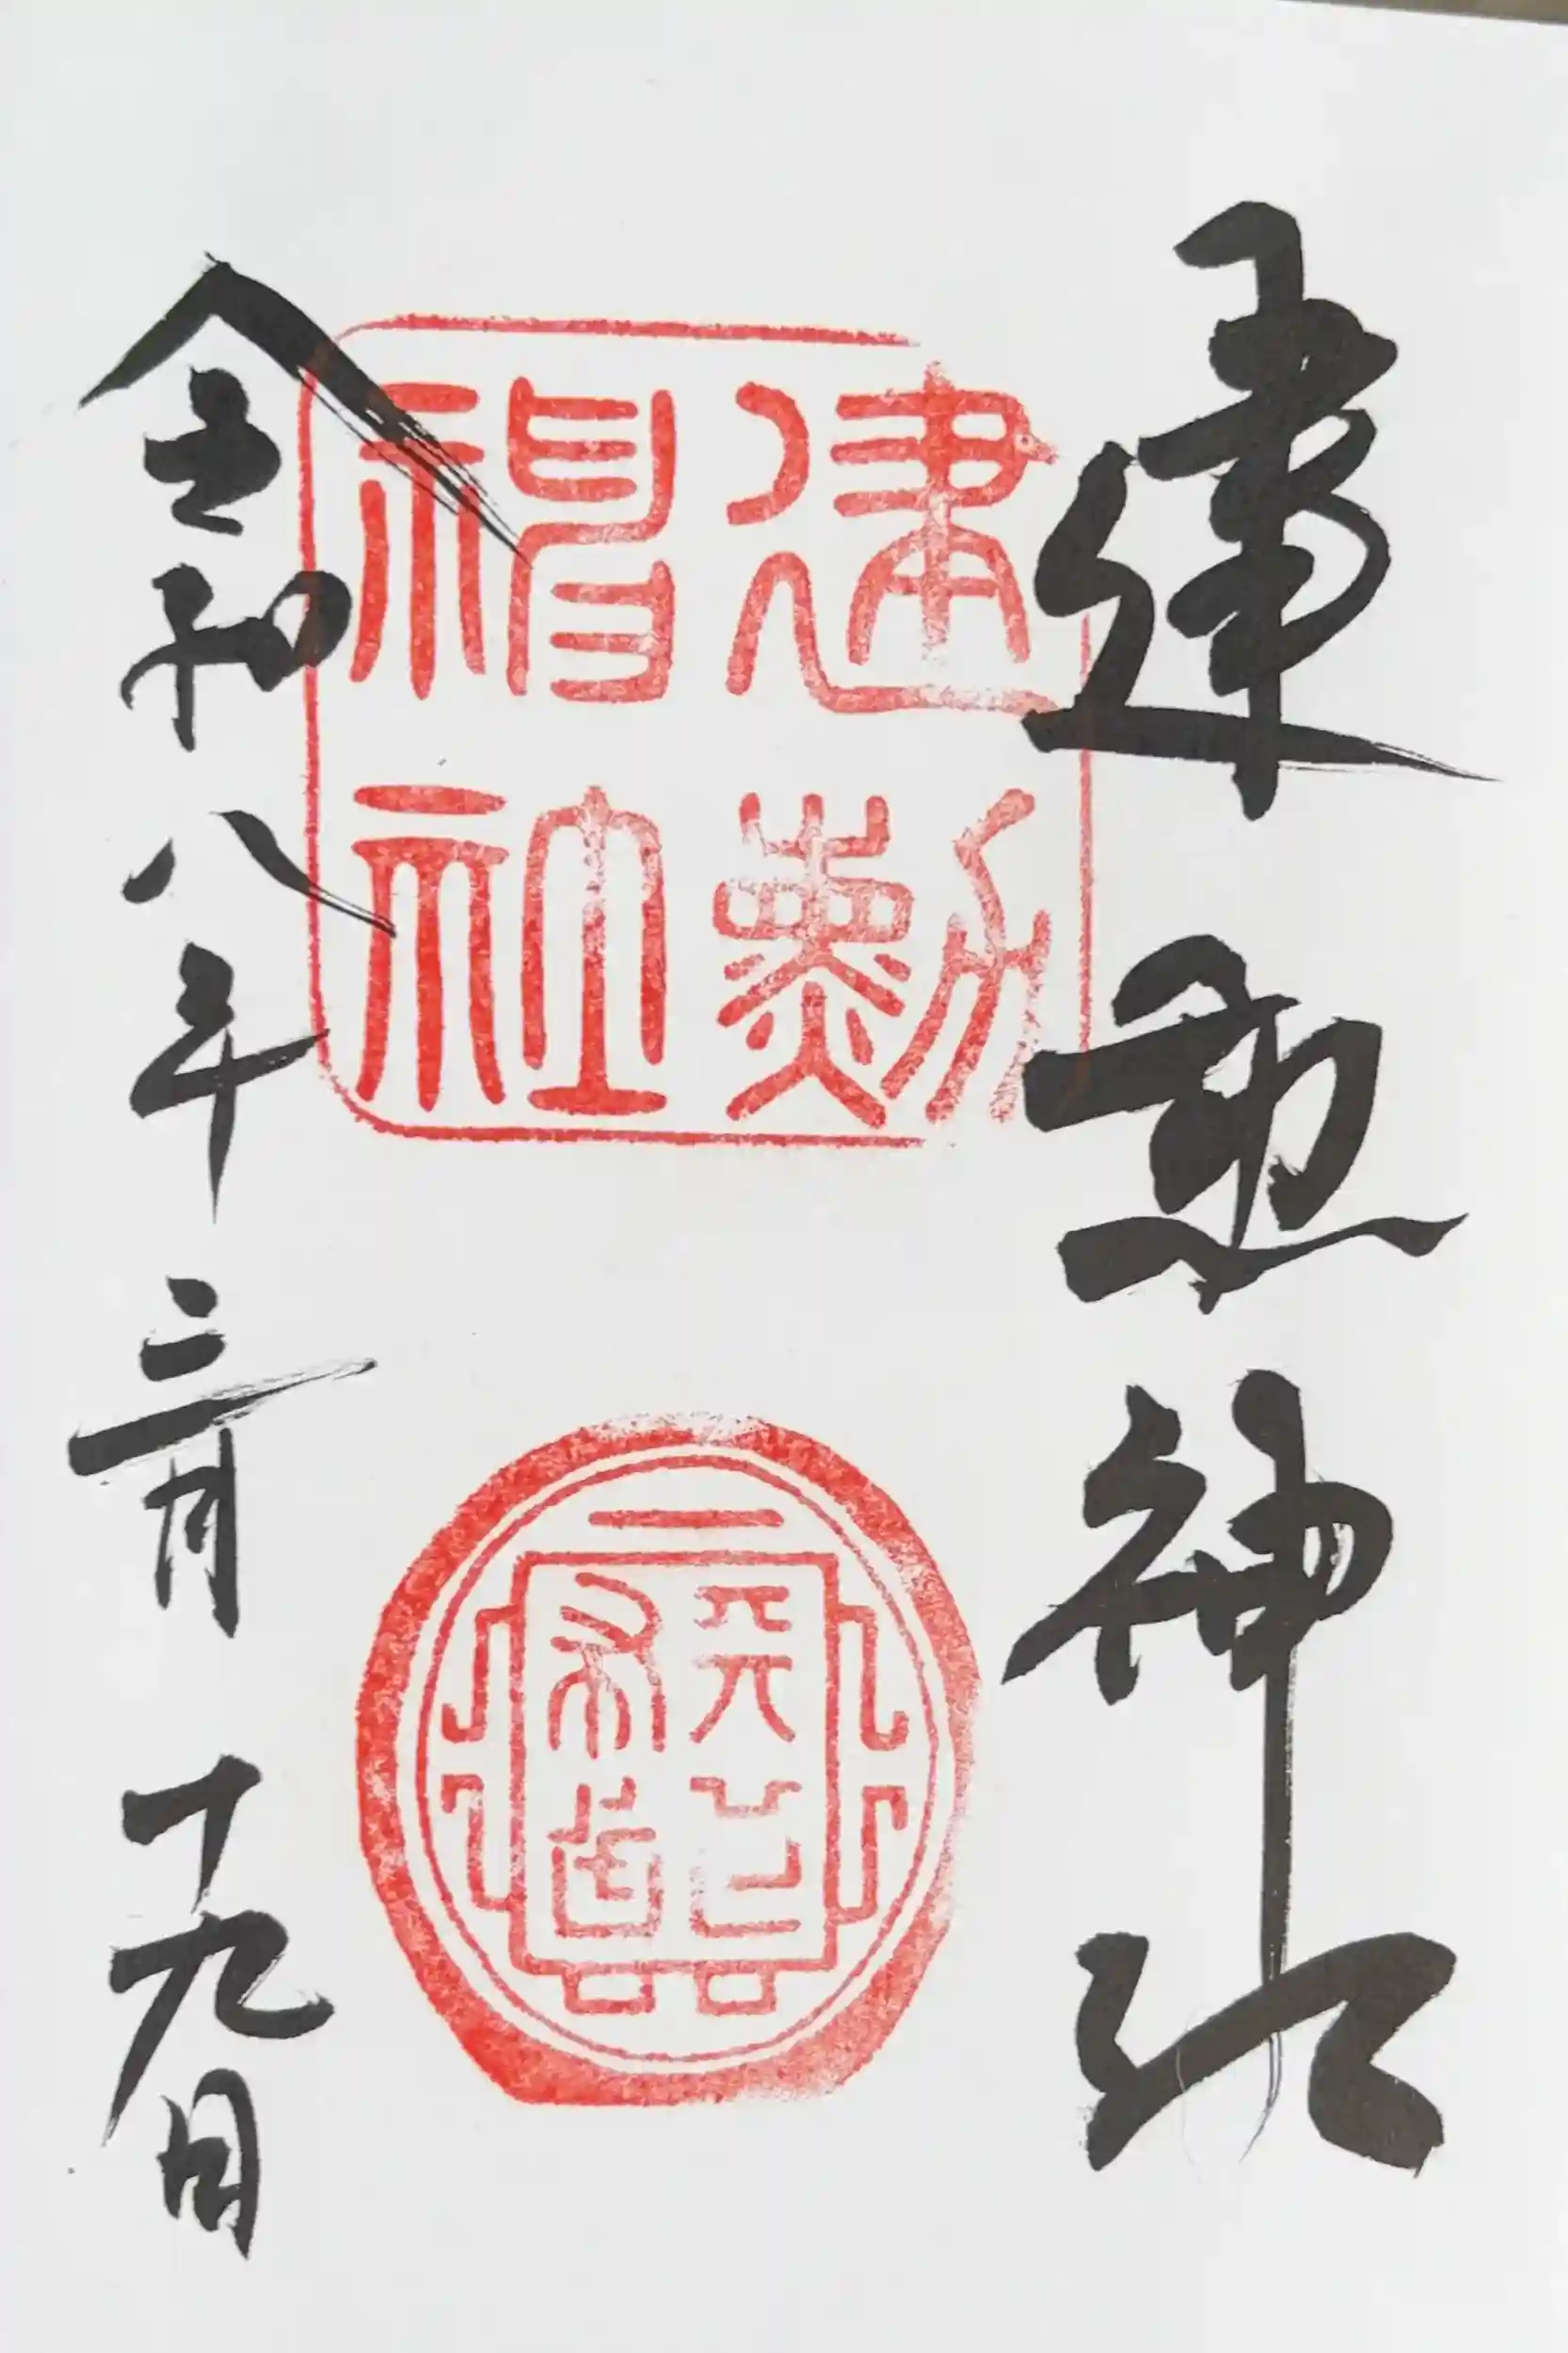 建勲神社
建勳神社
天下布武
令和八年三月十九日